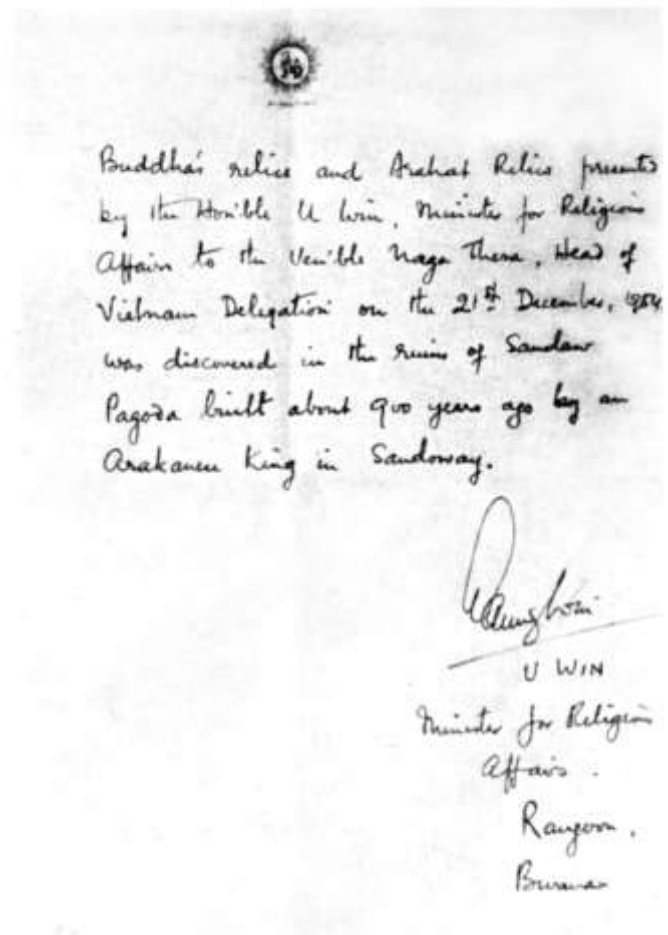 Buddha's relics and Arahat Relics presented
by the Hon'ble U Win, Minister for Religious
Affairs to the Ven'ble Naga Thera, Head of
Vietnam Delegation on the 21st December, 1954
was discovered in the ruins of Sandaw
Pagoda built about 900 years ago by an
Arakanese King in Sandoway.
U WIN
Minister for Religious
Affairs.
Rangoon,
Burma